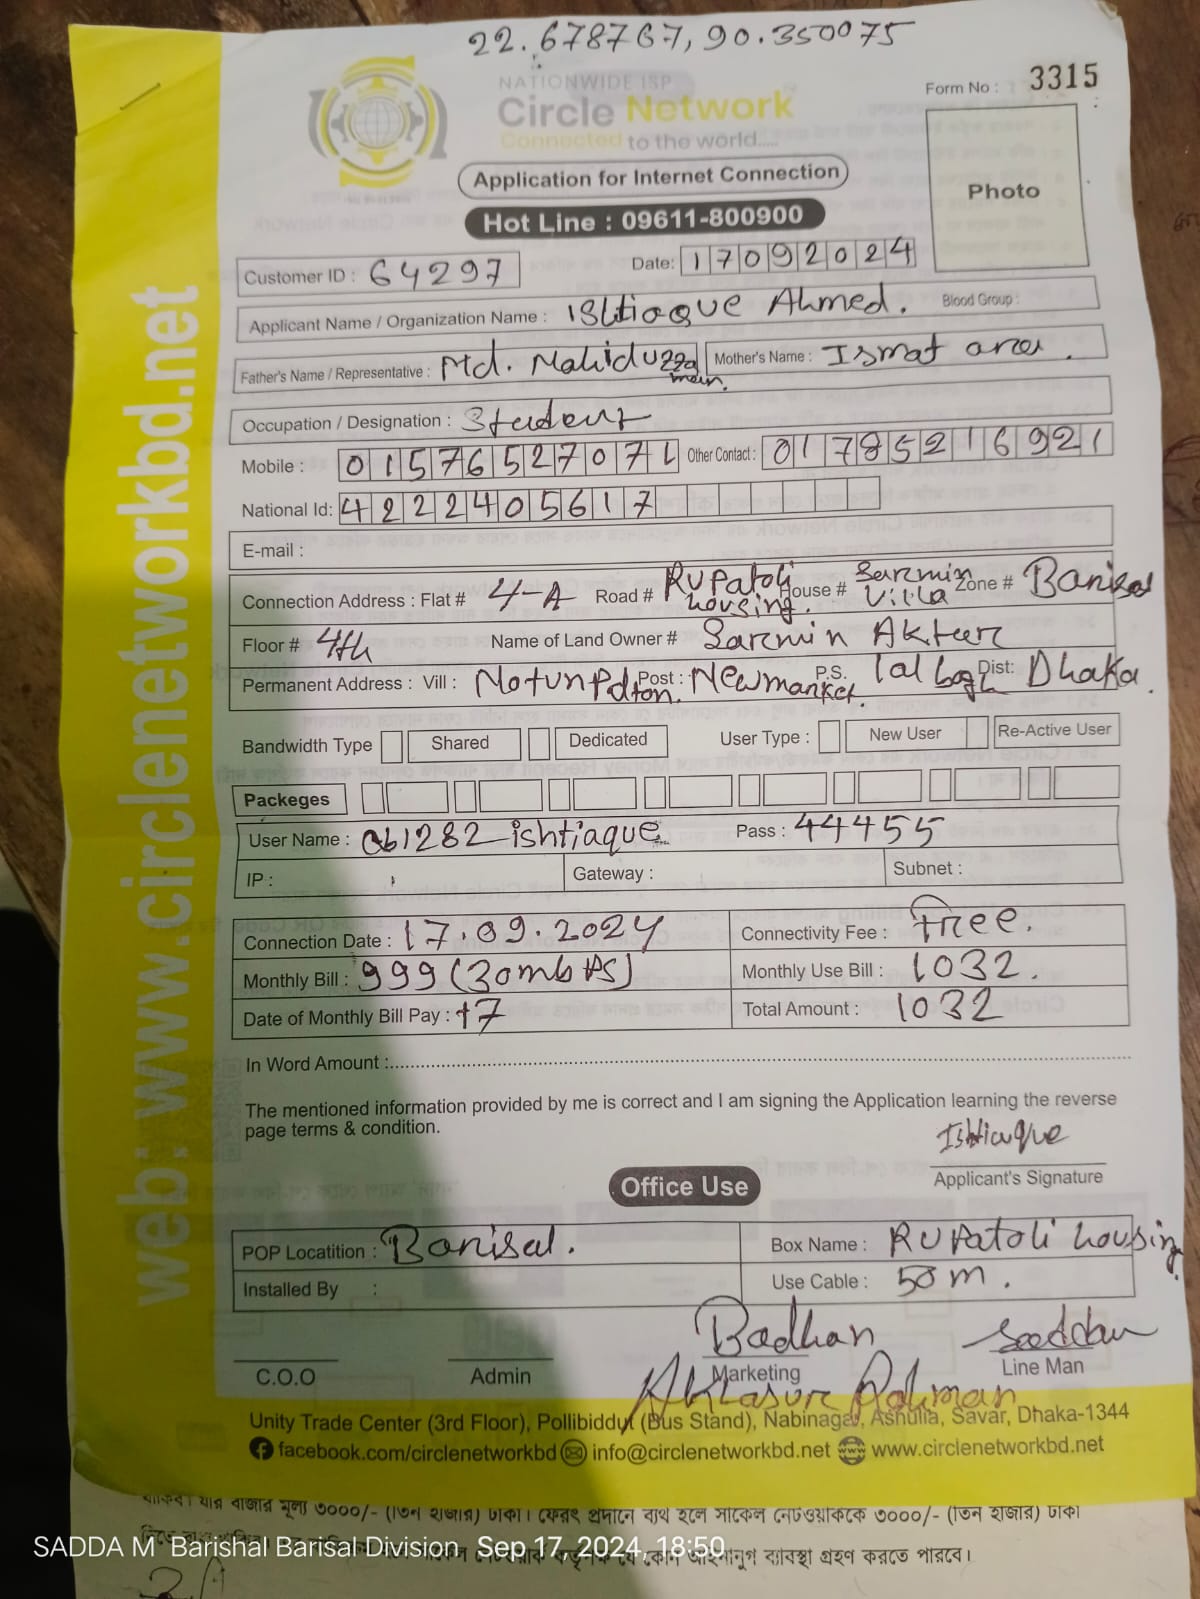 22.678767, 90.350075
NATIONWIDE ISP
Circle Network
Connected to the world.....
Form No : 3315
Photo
Application for Internet Connection
Hot Line : 09611-800900
Customer ID : 64297 Date: 17092024
Applicant Name / Organization Name : Ishtiaque Ahmed. Blood Group :
Father's Name / Representative : Md. Mahiduzzaman. Mother's Name : Ismat ara.
Occupation / Designation : Student
Mobile : 01576527071 Other Contact : 01785216921
National Id: 4222405617
E-mail :
Connection Address : Flat # 4-A Road # Rupatoli housing. House # Sarmin Villa Zone # Barisal
Floor # 4th Name of Land Owner # Sarmin Akter
Permanent Address : Vill : Notun Pdton. Post : Newmarket. P.S. lalbagh Dist: Dhaka.
Bandwidth Type Shared Dedicated User Type : New User Re-Active User
Packeges
User Name : cb1282-ishtiaque Pass : 44455
IP : Gateway : Subnet :
Connection Date : 17.09.2024 Connectivity Fee : Free.
Monthly Bill : 999 (30mbps) Monthly Use Bill : 1032.
Date of Monthly Bill Pay : 17 Total Amount : 1032
In Word Amount :
The mentioned information provided by me is correct and I am signing the Application learning the reverse
page terms & condition.
Ishtiaque
Applicant's Signature
Office Use
POP Locatition : Barisal. Box Name : Rupatoli housing.
Installed By : Use Cable : 50 m.
Badhan Saddam
C.O.O Admin Marketing Line Man
Akhlasur Rahman
Unity Trade Center (3rd Floor), Pollibiddut (Bus Stand), Nabinagar, Ashulia, Savar, Dhaka-1344
facebook.com/circlenetworkbd info@circlenetworkbd.net www.circlenetworkbd.net
web:www.circlenetworkbd.net
যার বাজার মূল্য ৩০০০/- (তিন হাজার) টাকা। ফেরৎ প্রদানে ব্যর্থ হলে সার্কেল নেটওয়ার্ককে ৩০০০/- (তিন হাজার) টাকা
আইনানুগ ব্যবস্থা গ্রহণ করতে পারবে।
SADDA M Barishal Barisal Division Sep 17, 2024, 18:50